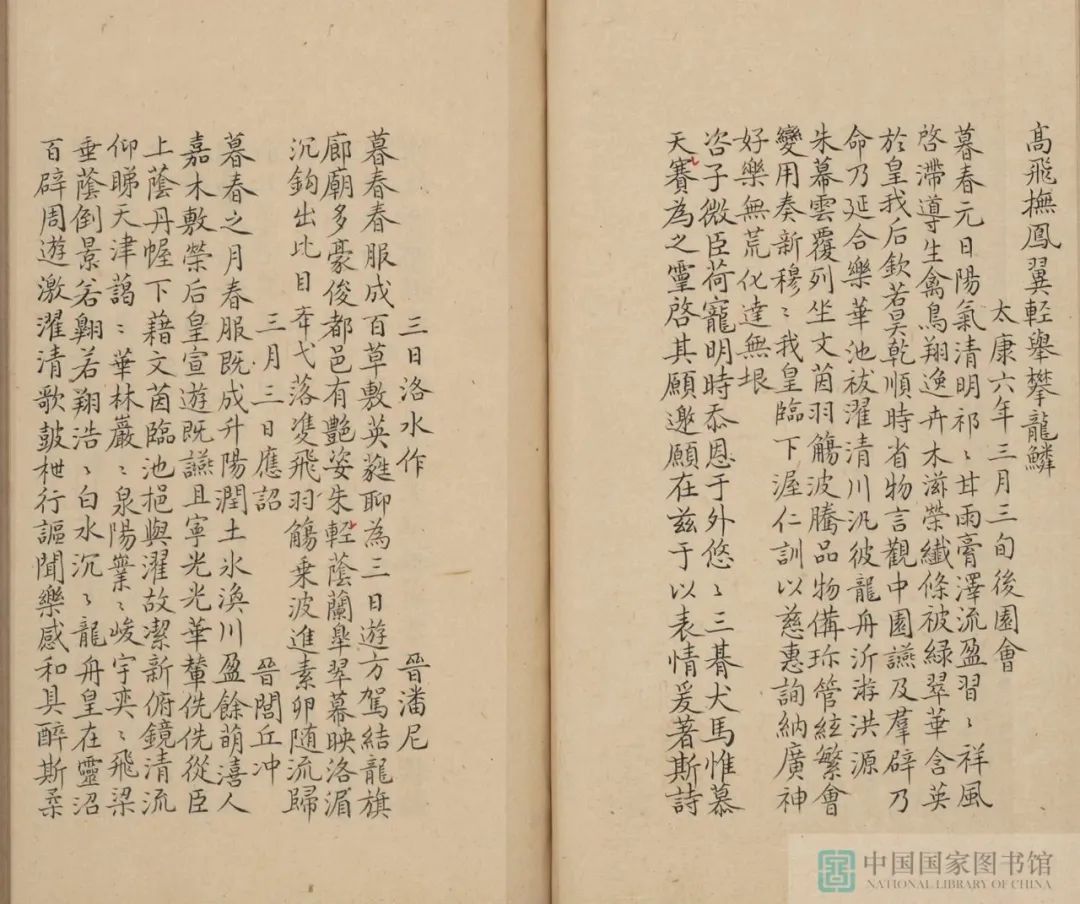 高飛撫鳳翼輕舉攀龍鱗
太康六年三月三旬後園會
暮春元日陽氣清明祁〻甘雨膏澤流盈習〻祥風
啓滯導生禽鳥翔逸卉木滋榮纖條被綠翠華含英
於皇我后欽若昊乾順時省物言觀中園讌及羣辟乃
命乃延合樂華池祓濯清川汎彼龍舟沂游洪源
朱幕雲覆列坐文茵羽觴波騰品物備珎管絃繁會
變用奏新穆〻我皇臨下渥仁訓以慈惠詢納廣神
好樂無荒化達無垠
咨子微臣荷寵明時忝恩于外悠〻三朞犬馬惟慕
天賽為之靈啓其願邀願在兹于以表情爰著斯詩
三日洛水作
晉潘尼
暮春春服成百草敷英蕤聊為三日遊方駕結龍旗
廊廟多豪俊都邑有艷姿朱軽蔭蘭皐翠幕映洛湄
沉鈎出比目弃弋落隻飛羽觴乗波進素卵随流歸
三月三日應詔
晉閭丘冲
暮春之月春服既成升陽潤土氷渙川盈餘萌熹人
嘉木敷榮后皇宣遊既讌且寧光光華輦侁侁從臣
上蔭丹幄下藉文茵臨池挹與濯故潔新俯鏡清流
仰睇天津藹〻華林巖〻泉陽業〻峻宇奕〻飛梁
垂蔭倒景若翺若翔浩〻白水沉〻龍舟皇在靈沼
百辟周遊激濯清歌皷枻行謳聞樂感和具醉斯柔
中国国家图书馆
NATIONAL LIBRARY OF CHINA